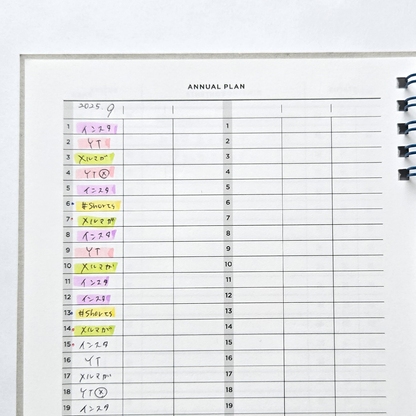 ANNUAL PLAN
2025. 9
1 インスタ 1
2 YT 2
3 メルマガ 3
4 YT Ⓧ 4
5 インスタ 5
6 #Shorts 6
7 メルマガ 7
8 インスタ 8
9 YT 9
10 メルマガ 10
11 インスタ 11
12 インスタ 12
13 #Shorts 13
14 メルマガ 14
15 インスタ 15
16 YT 16
17 メルマガ 17
18 YT Ⓧ 18
19 インスタ 19